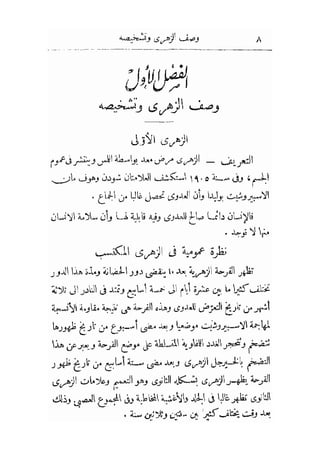 ٨ وصف الزهرى وتشخيصه
الفصل الأول
وصف الزهرى وتشخيصه
الزهرى الأولى
التعريف — الزهرى مرض معد بواسطة اللمس وينتشر فى عموم
الجسم، وفى سنة ١٩٠٥ استكشف العلامتان شودن وهوفمان
الاسبيروشيت بوليدا وأن العدوى تحصل غالبا من الجماع .
فالإنسان دائما صالح للعدوى وفيه قابلية لها وأن سلامة الانسان
منها لا توجد .
نظرة عمومية فى الزهرى المكتسب
تظهر القرحة الزهرية بعد ١٠ ينقضى دور الحضانة ومدة هذا الدور
تختلف كثيرا ما بين عشرة أيام الى خمسة أسابيع وتمتد فى النادر الى ثلاثة
أشهر من تاريخ التعرض للعدوى وهذه القرحة هى نتيجة مقاومة الأنسجة
لمهاجمة الاسبيروشيت موضعيا وبعد مضى أسبوع من تاريخ ظهورها
تتضخم وتتحجر الغدد اللمفاوية المتسلطة على موضع القرحة ويعبر عن هذا
التضخم بالخيرجل الزهرى وبعد مضى ستة أسابيع من تاريخ ظهور
القرحة يظهر الزهرى بشكله الثانوى وهو التعميم وعلامات الزهرى
الثانوى تظهر غالبا فى الجلد والأغشية المخاطية وفى المجموع العصبى وذلك
بعد وقت يختلف كثيرا بين سنتين وثلاثين سنة .